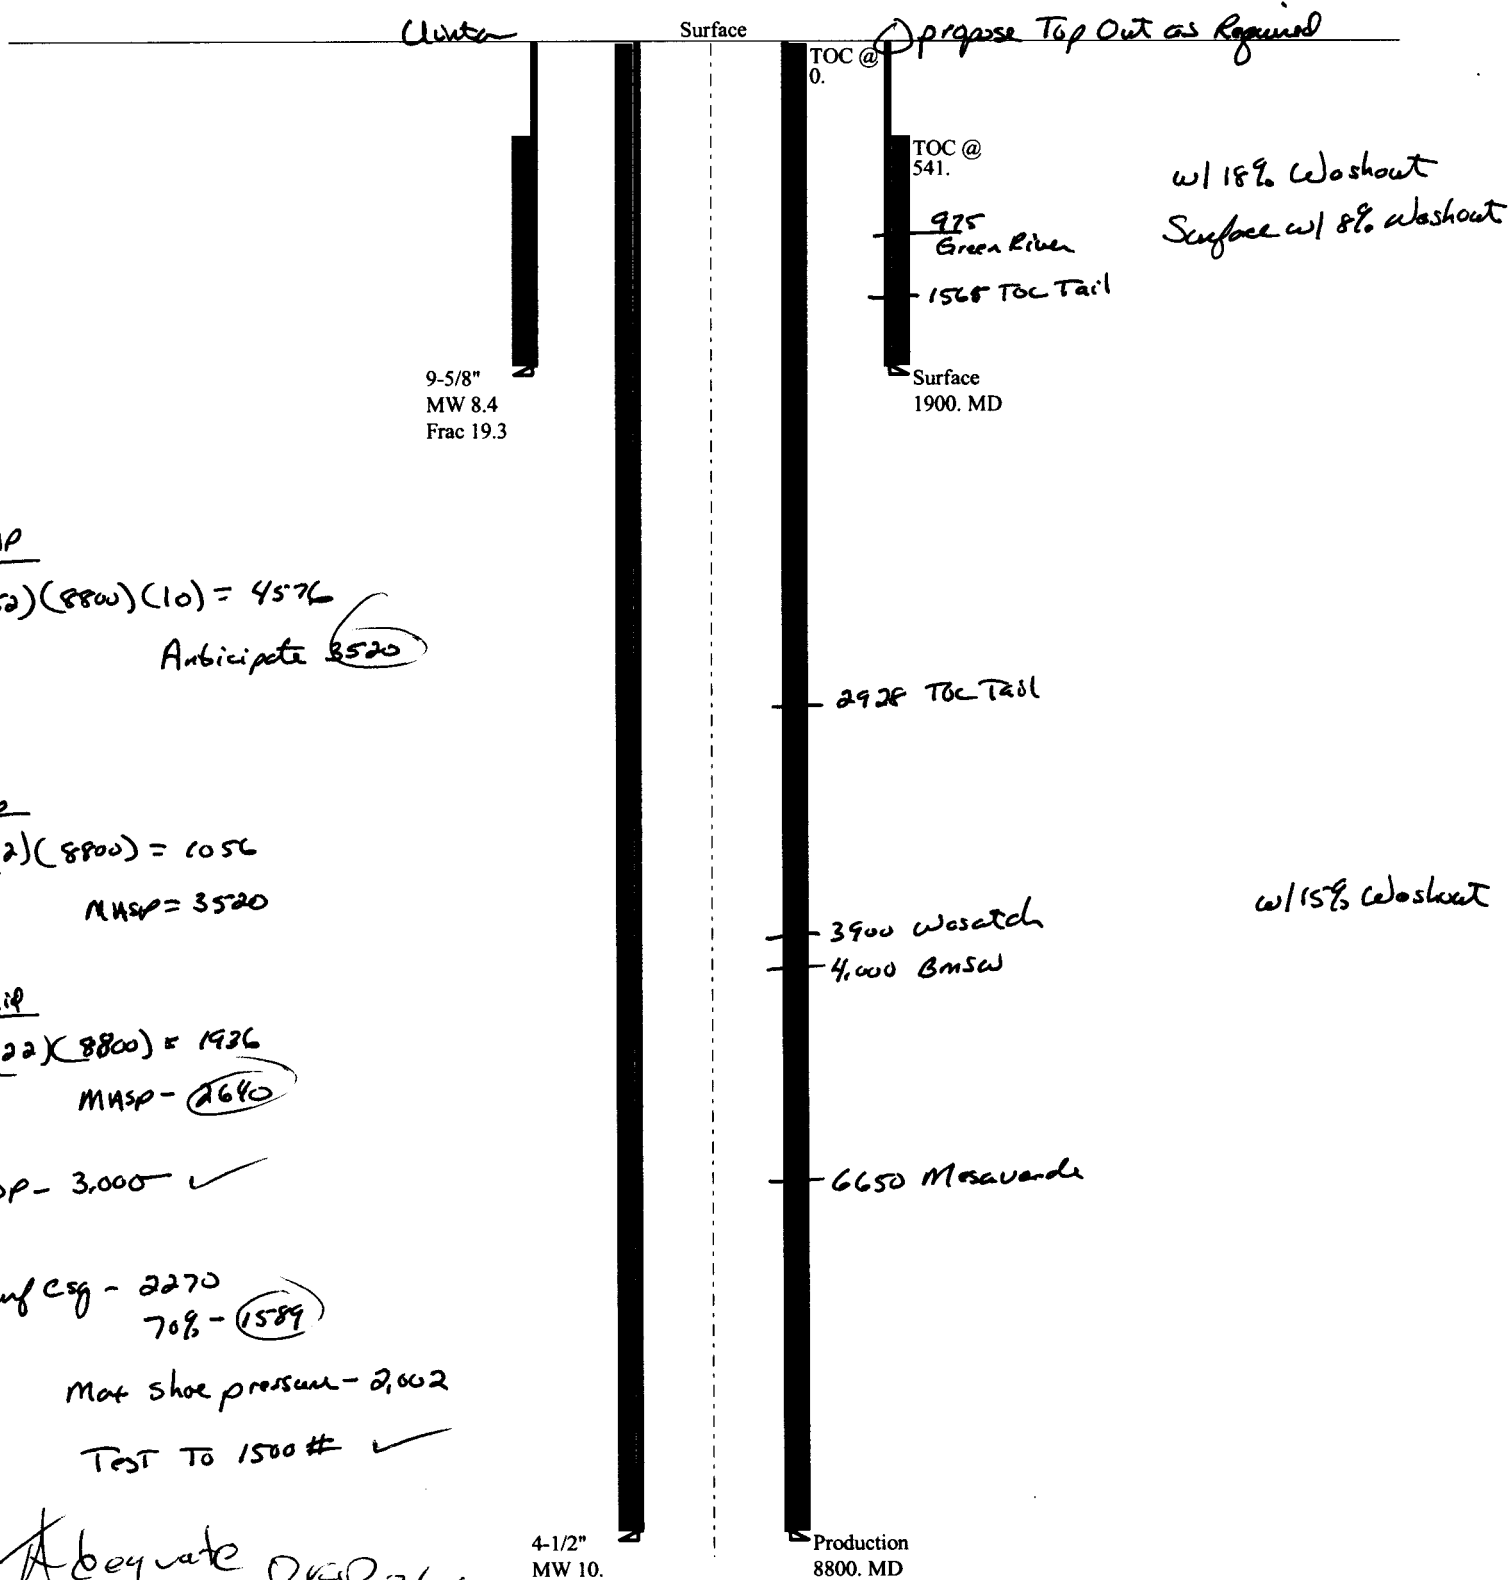 Surface
propose Top Out as Required
TOC @
0.
TOC @
541.
w/ 18% Washout
Surface w/ 8% Washout
975
Green River
1565 TOC Tail
9-5/8"
MW 8.4
Frac 19.3
Surface
1900. MD
P
2)(8800)(10) = 4576
Anticipate 3520
2928 TOC Tail
2)(8800) = 1056
MASP = 3520
w/ 15% Washout
3900 Wasatch
4,000 BMSW
22)(8800) = 1936
MASP - 2640
6650 Mesaverde
P - 3,000 ✓
Csg - 2270
70% - 1589
Max shoe pressure - 2,002
Test To 1500 # ✓
Adequate
4-1/2"
MW 10.
Production
8800. MD